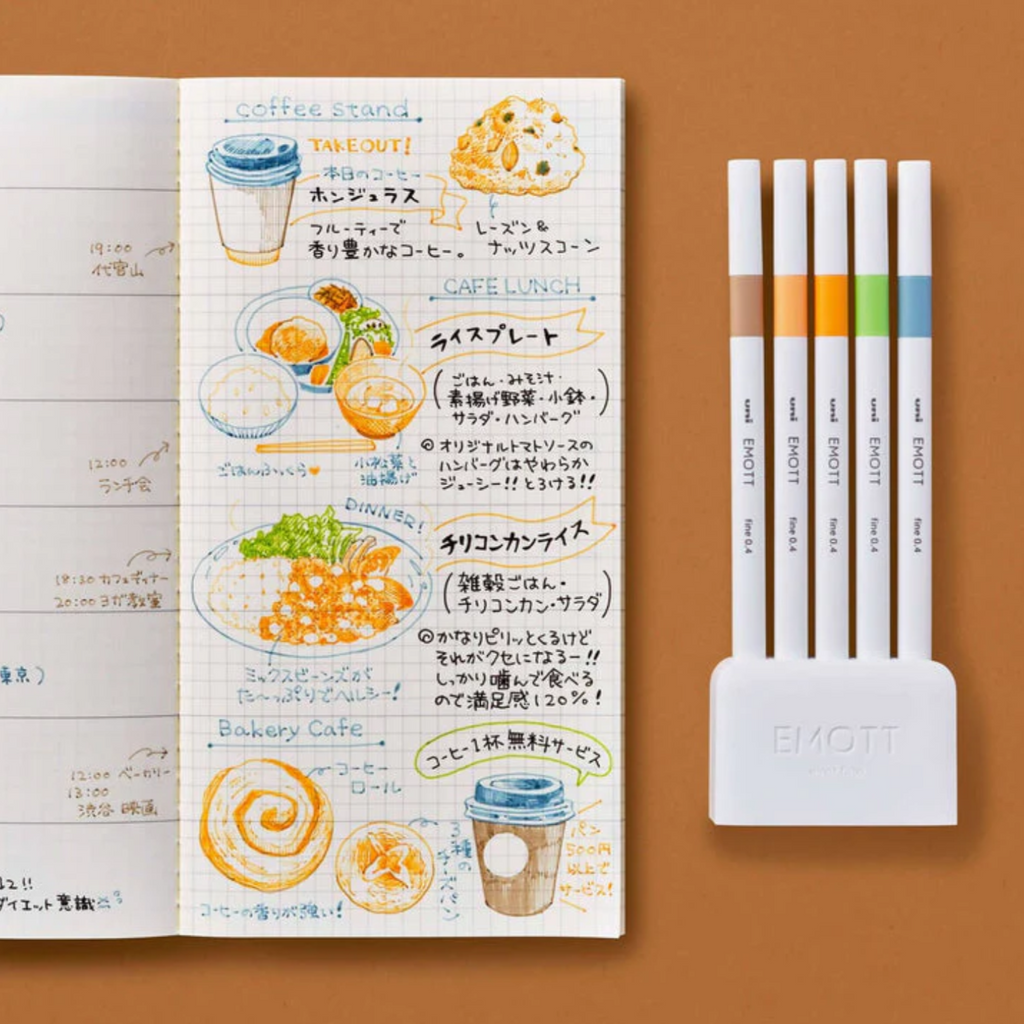 19:00
代官山
12:00
ランチ会
18:30 カフェディナー
20:00 ヨガ教室
東京)
12:00 ベーカリー
13:00
渋谷 映画
12!!
ダイエット意識
coffee stand
TAKEOUT!
本日のコーヒー
ホンジュラス
フルーティーで
香り豊かなコーヒー。
レーズン&
ナッツスコーン
CAFE LUNCH
ライスプレート
(ごはん・みそ汁・
素揚げ野菜・小鉢・
サラダ・ハンバーグ)
◎オリジナルトマトソースの
ハンバーグはやわらか
ジューシー!!とろける!!
ごはんふっくら
小松菜と
油揚げ
DINNER!
チリコンカンライス
(雑穀ごはん・
チリコンカン・サラダ)
◎かなりピリッとくるけど
それがクセになるー!!
しっかり噛んで食べる
ので満足感120%!
ミックスビーンズが
た〜っぷりでヘルシー!
Bakery Cafe
コーヒー
ロール
3種の
チーズパン
コーヒーの香りが強い!
コーヒー1杯無料サービス
パン
500円
以上で
サービス!
uni
EMOTT
fine 0.4
uni
EMOTT
fine 0.4
uni
EMOTT
fine 0.4
uni
EMOTT
fine 0.4
uni
EMOTT
fine 0.4
EMOTT